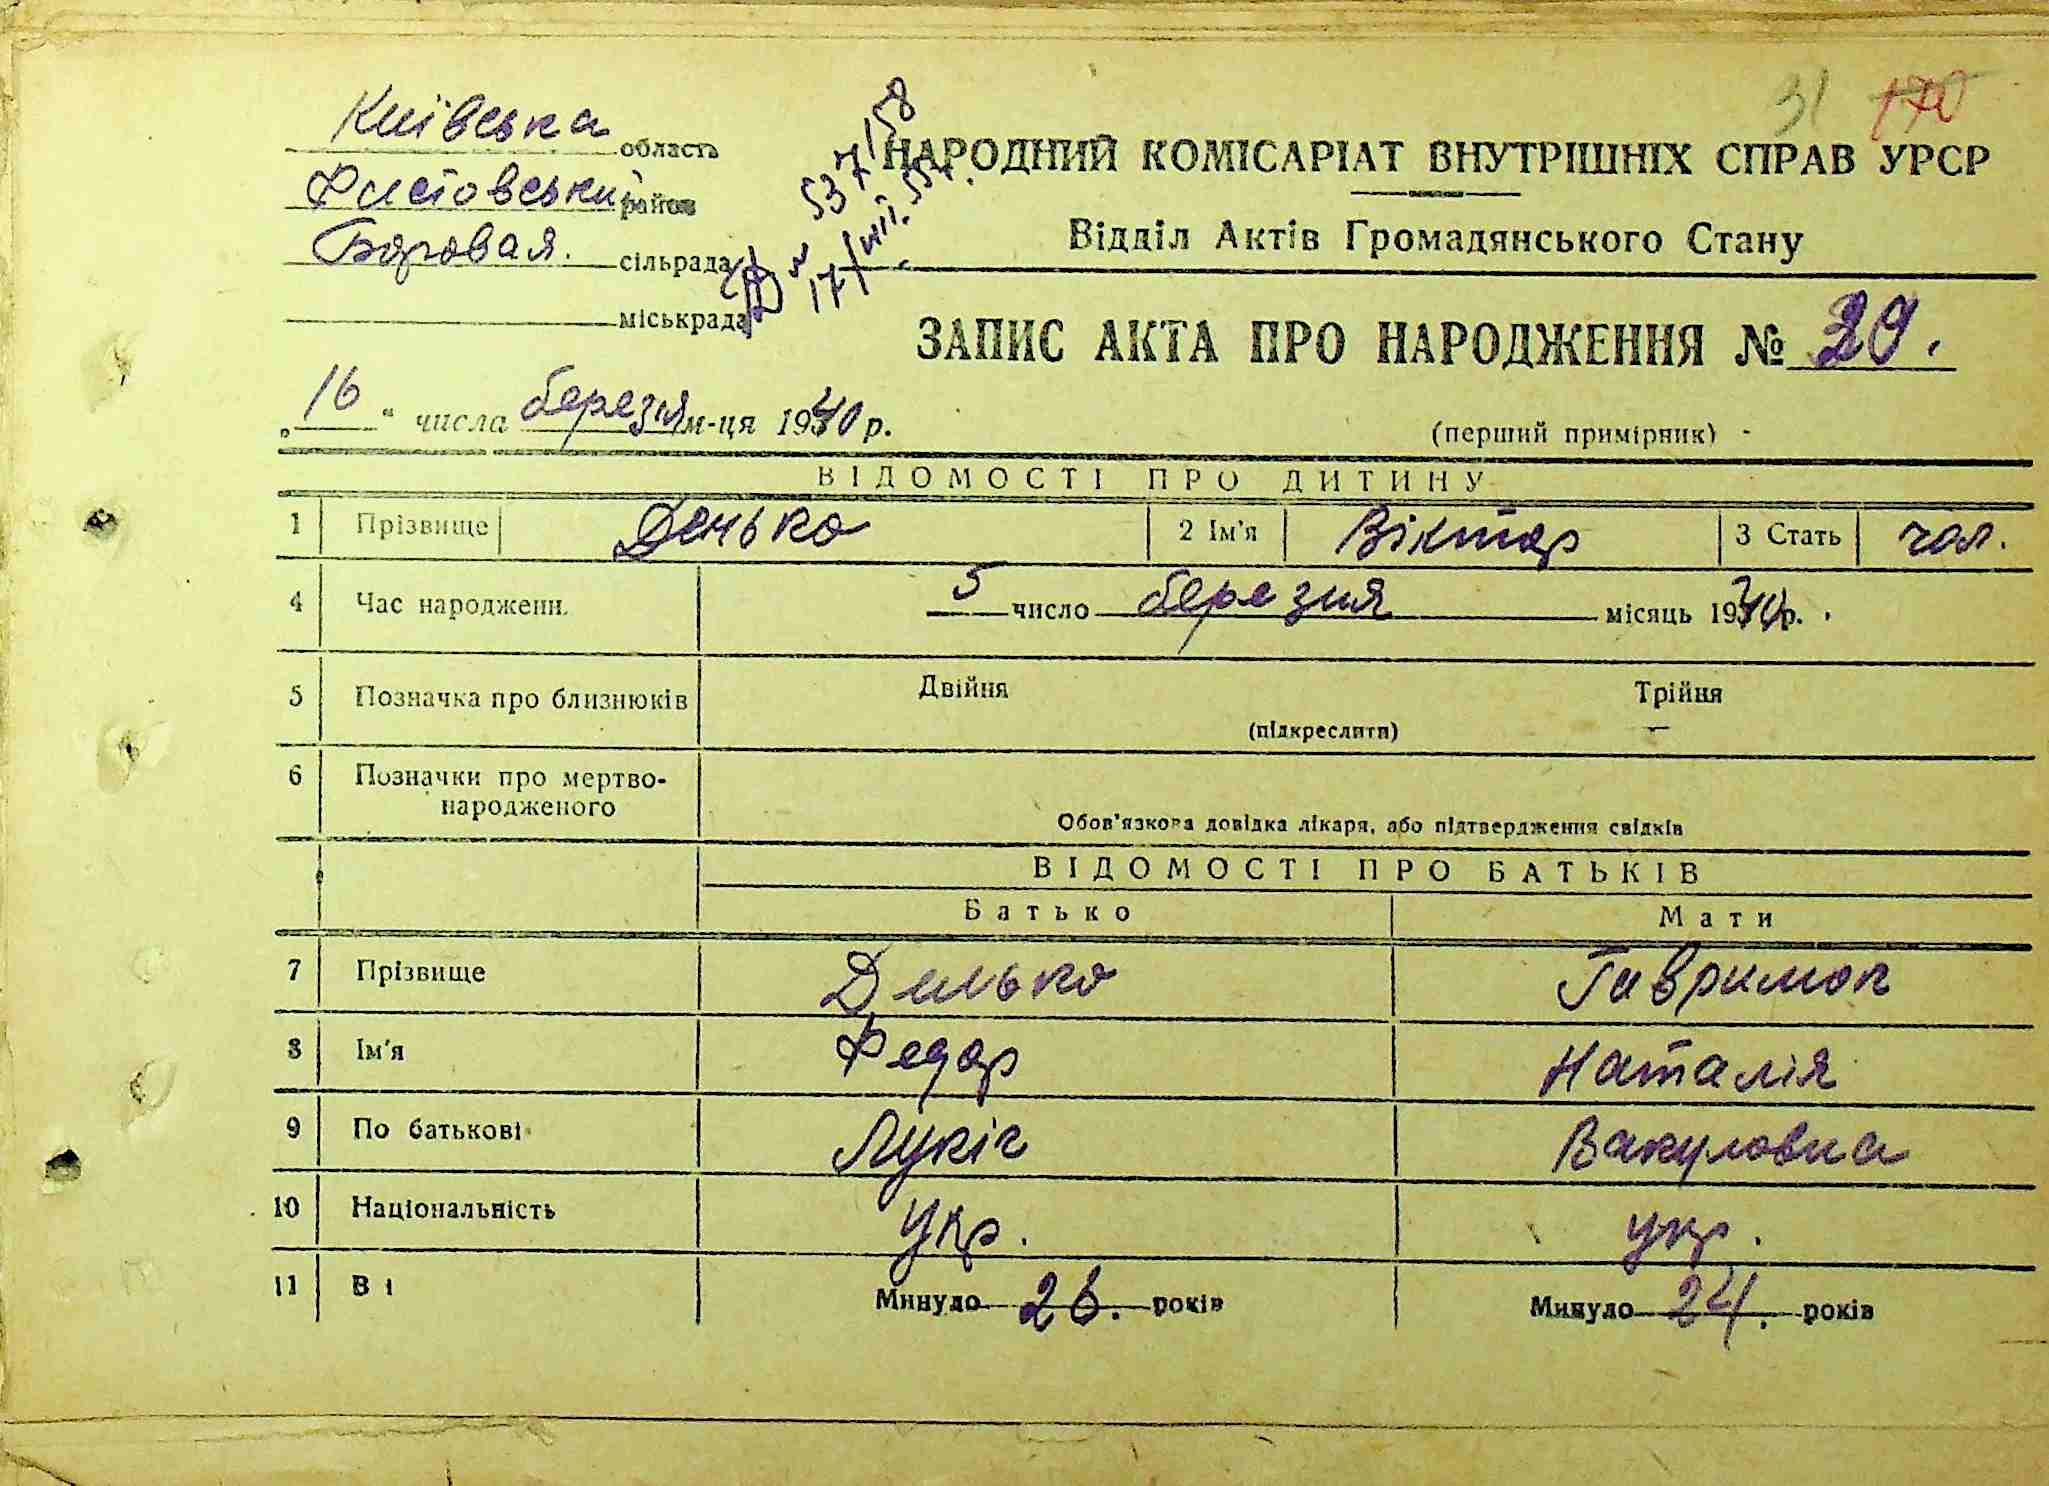 31 170
Київська область
НАРОДНИЙ КОМІСАРІАТ ВНУТРІШНІХ СПРАВ УРСР
Фастовський район
Відділ Актів Громадянського Стану
Боровая. сільрада
№ 537/58
17/VIII.
міськрада
ЗАПИС АКТА ПРО НАРОДЖЕННЯ № 29.
„16“ числа березня м-ця 1940 р.
(перший примірник)
ВІДОМОСТІ ПРО ДИТИНУ
1 Прізвище Денько 2 Ім'я Віктор 3 Стать чол.
4 Час народженн. 5 число березня місяць 1940 р.
5 Позначка про близнюків Двійня Трійня
(підкреслити)
6 Позначки про мертво-
народженого
Обов'язкова довідка лікаря, або підтвердження свідків
ВІДОМОСТІ ПРО БАТЬКІВ
Батько Мати
7 Прізвище Денько Гавримок
8 Ім'я Федор Наталія
9 По батькові Лукіч Вакуловна
10 Національність укр. укр.
11 Ві Минуло 26. років Минуло 24. років